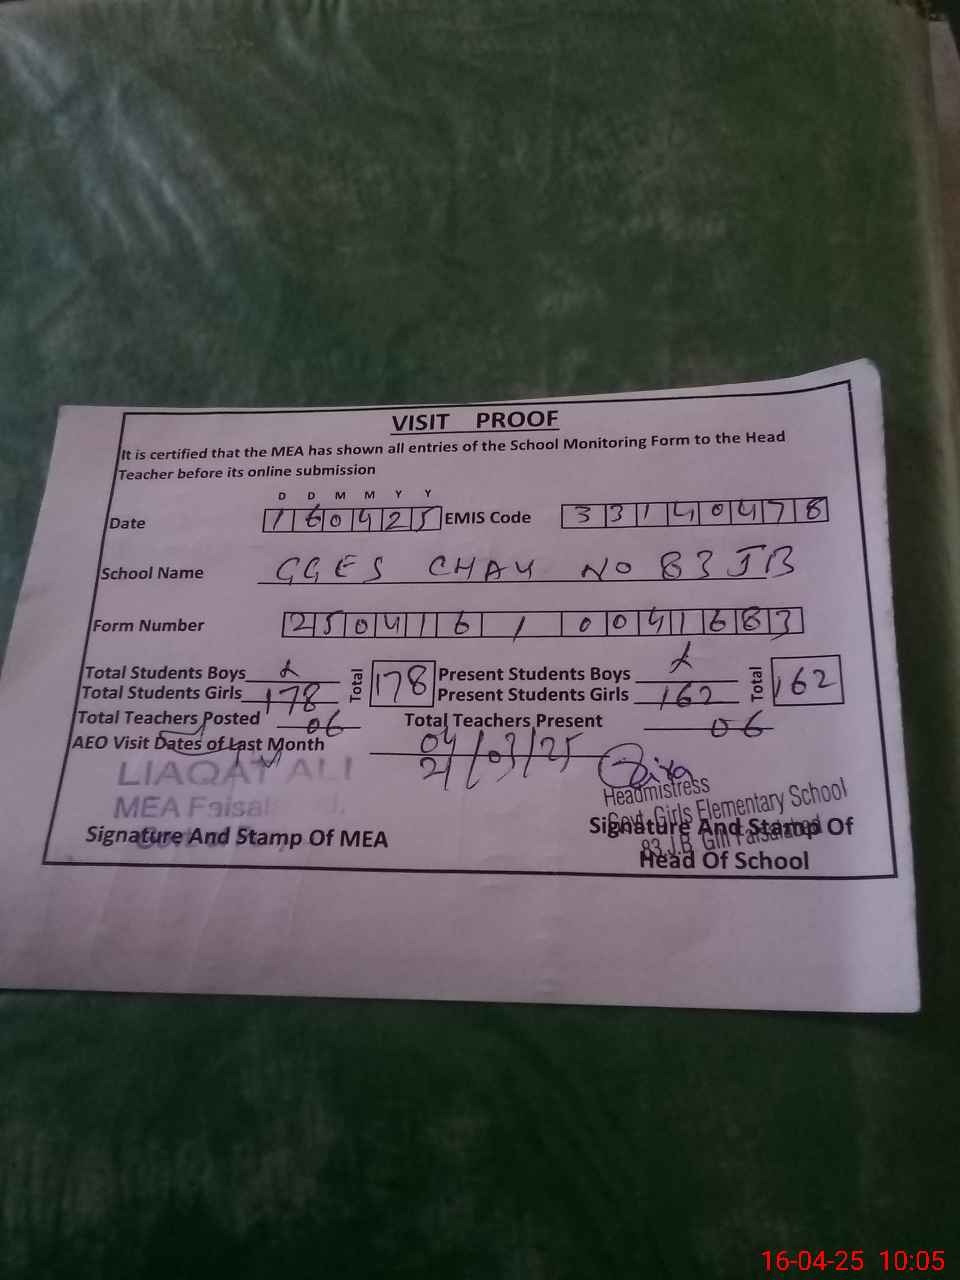 VISIT PROOF
It is certified that the MEA has shown all entries of the School Monitoring Form to the Head
Teacher before its online submission
D D M M Y Y
Date 160425 EMIS Code 33140478
School Name GGES CHAK NO 83 JB
Form Number 250416 1 0041683
Total Students Boys Total 178 Present Students Boys Total 162
Total Students Girls 178 Present Students Girls 162
Total Teachers Posted 06 Total Teachers Present 06
AEO Visit Dates of Last Month 04/03/25
21
LIAQAT ALI
MEA Faisal
Headmistress
Govt. Girls Elementary School
83 J.B. Gill Faisalabad
Signature And Stamp Of MEA
Signature And Stamp Of
Head Of School
16-04-25 10:05